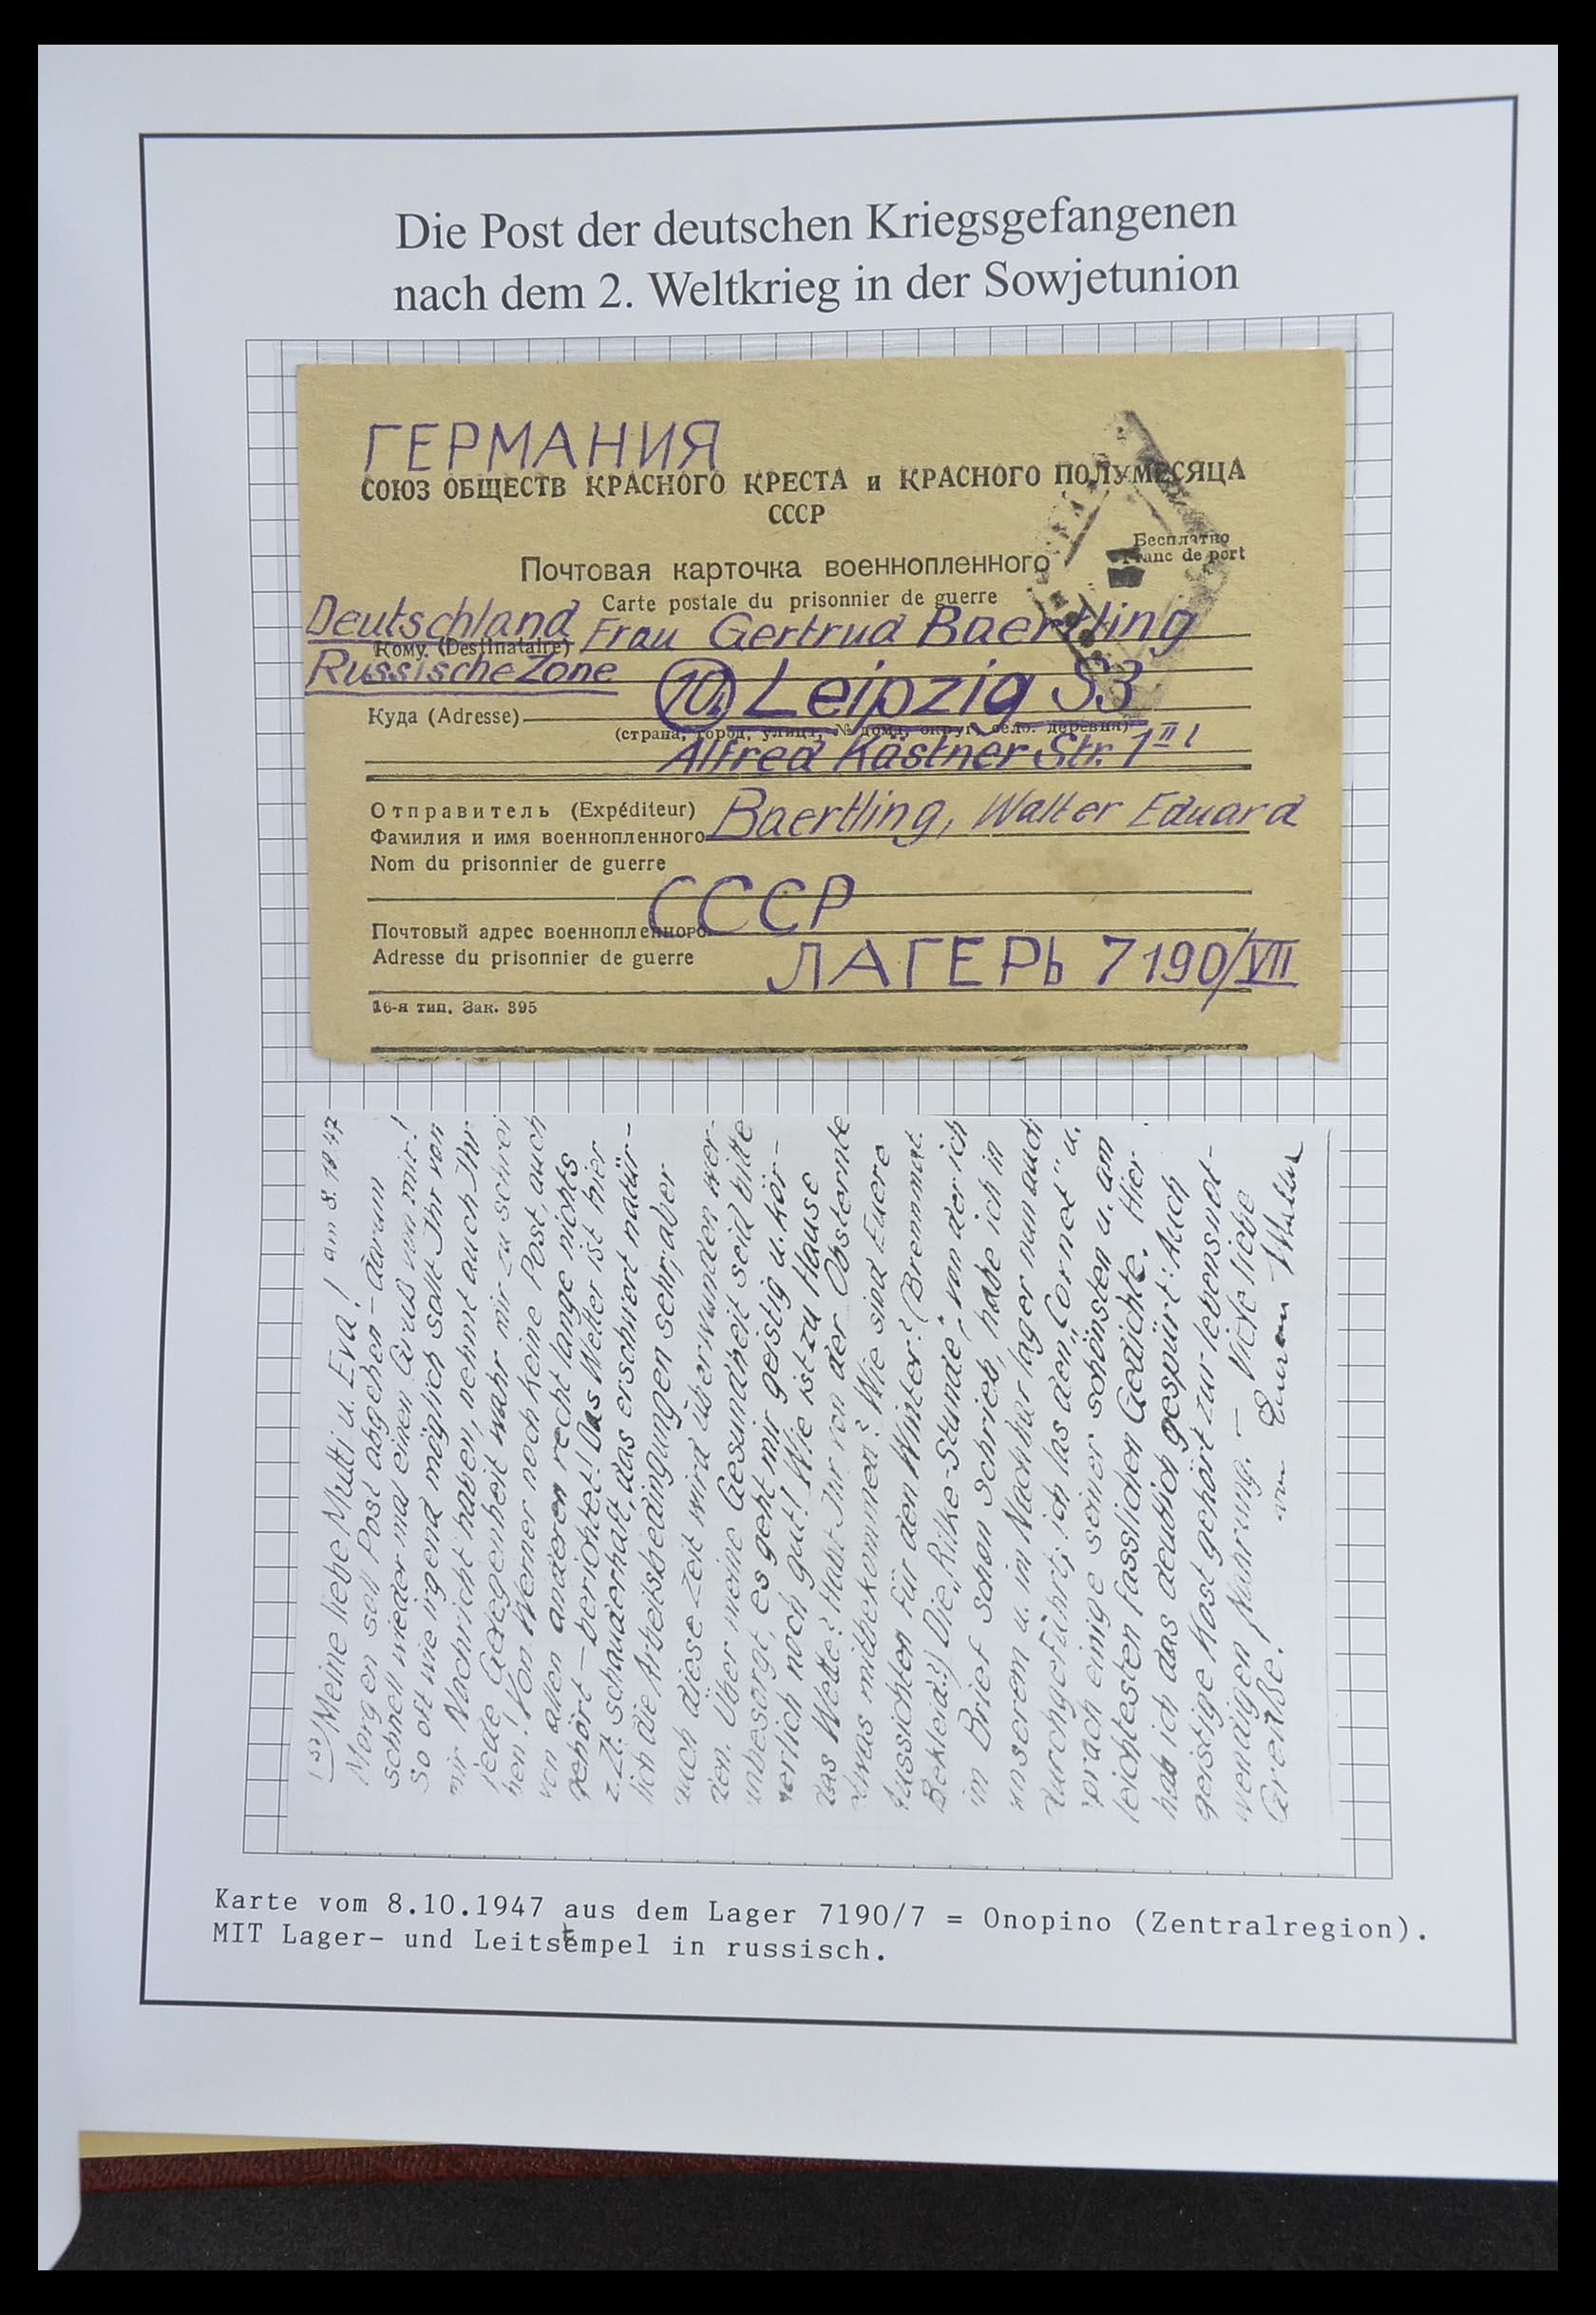 Die Post der deutschen Kriegsgefangenen
nach dem 2. Weltkrieg in der Sowjetunion
ГЕРМАНИЯ
СОЮЗ ОБЩЕСТВ КРАСНОГО КРЕСТА и КРАСНОГО ПОЛУМЕСЯЦА
СССР
Бесплатно
Franc de port
Почтовая карточка военнопленного
Carte postale du prisonnier de guerre
Deutschland
Кому (Destinataire) Frau Gertrud Baertling
Russische Zone
Куда (Adresse) (10.) Leipzig S3
(страна, город, улица, № дома, округ, село, деревня)
Alfred Kästner Str. 1 II l
Отправитель (Expéditeur)
Фамилия и имя военнопленного Baertling, Walter Eduard
Nom du prisonnier de guerre
Почтовый адрес военнопленного СССР
Adresse du prisonnier de guerre ЛАГЕРЬ 7190/VII
16-я тип. Зак. 395
15) Meine liebe Mutti u. Eva! am 8.10.47
Morgen soll Post abgehen – darum
schnell wieder mal einen Gruß von mir!
So oft wie irgend möglich sollt Ihr von
mir Nachricht haben, nehmt auch Ihr
jede Gelegenheit wahr mir zu schrei
ben! Von Werner noch keine Post, auch
von allen anderen recht lange nichts
gehört – berichtet! Das Wetter ist hier
z.Zt. schauderhaft, das erschwert natür-
lich die Arbeitsbedingungen sehr, aber
auch diese Zeit wird überwunden wer-
den. Über meine Gesundheit seid bitte
unbesorgt, es geht mir geistig u. kör-
perlich noch gut! Wie ist zu Hause
das Wetter? Habt Ihr von der Obsternte
etwas mitbekommen? Wie sind Euere
Aussichten für den Winter? (Brennmat.
Bekleid.?) Die „Rilke-Stunde“, von der ich
im Brief schon schrieb, habe ich in
unserem u. im Nachbarlager nun auch
durchgeführt; ich las den „Cornet“ u.
sprach einige seiner schönsten u. am
leichtesten fasslichen Gedichte. Hier
hab ich das deutlich gespürt: Auch
geistige Kost gehört zur lebensnot-
wendigen Nahrung. – Viele liebe
Grüße! Euer Walter
Karte vom 8.10.1947 aus dem Lager 7190/7 = Onopino (Zentralregion).
MIT Lager- und Leitstempel in russisch.